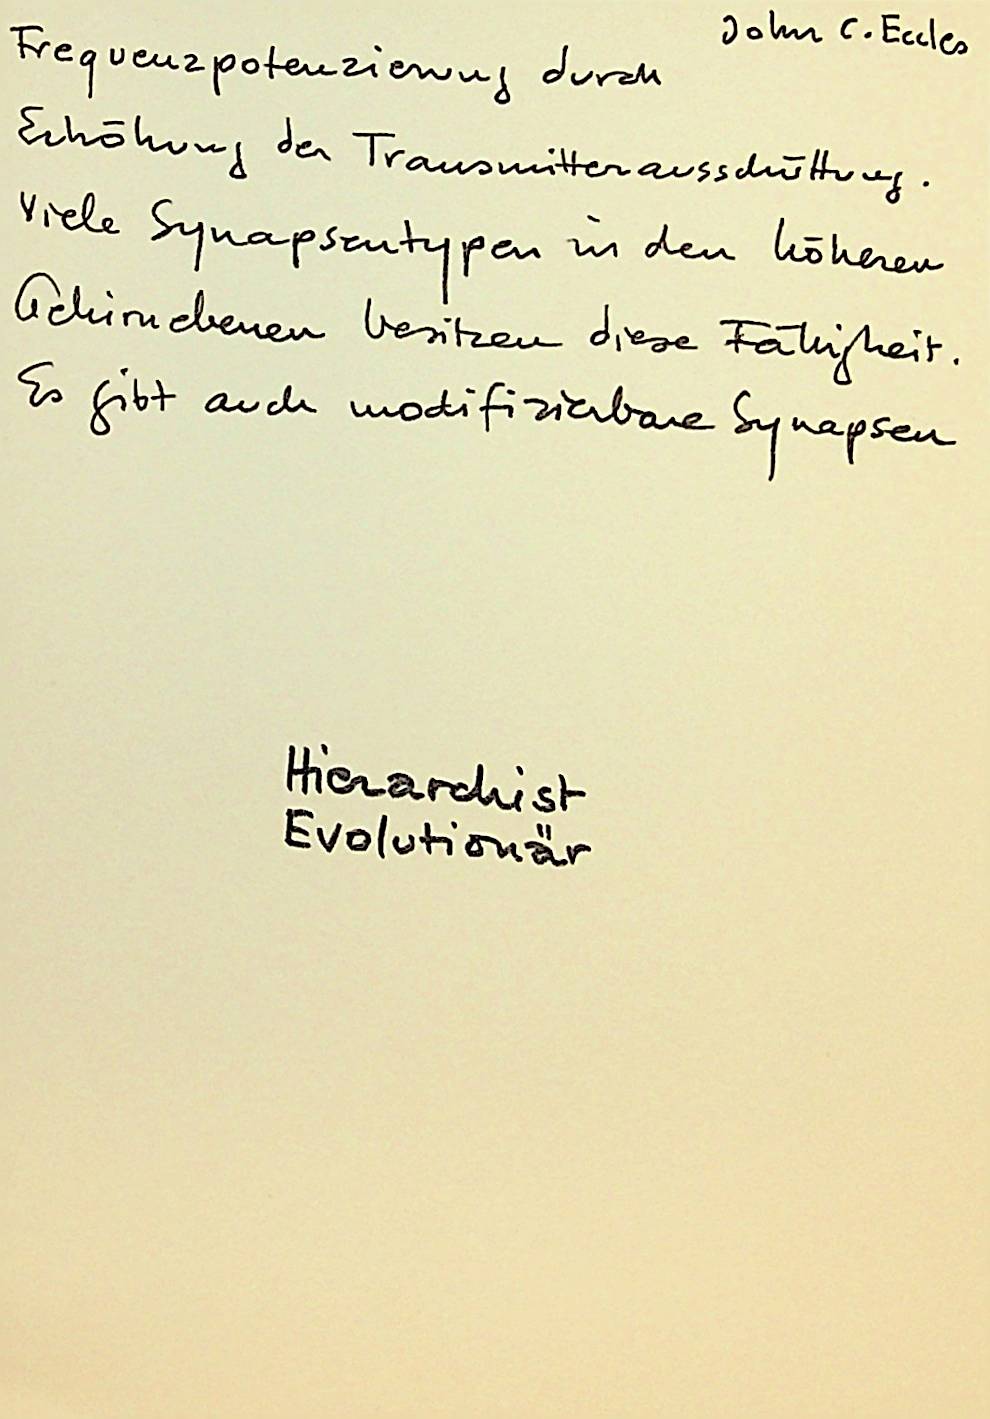 John C. Eccles
Frequenzpotenzierung durch
Erhöhung der Transmitterausschüttung.
Viele Synapsentypen in den höheren
Gehirnebenen besitzen diese Fähigkeit.
Es gibt auch modifizierbare Synapsen
Hierarchist
Evolutionär